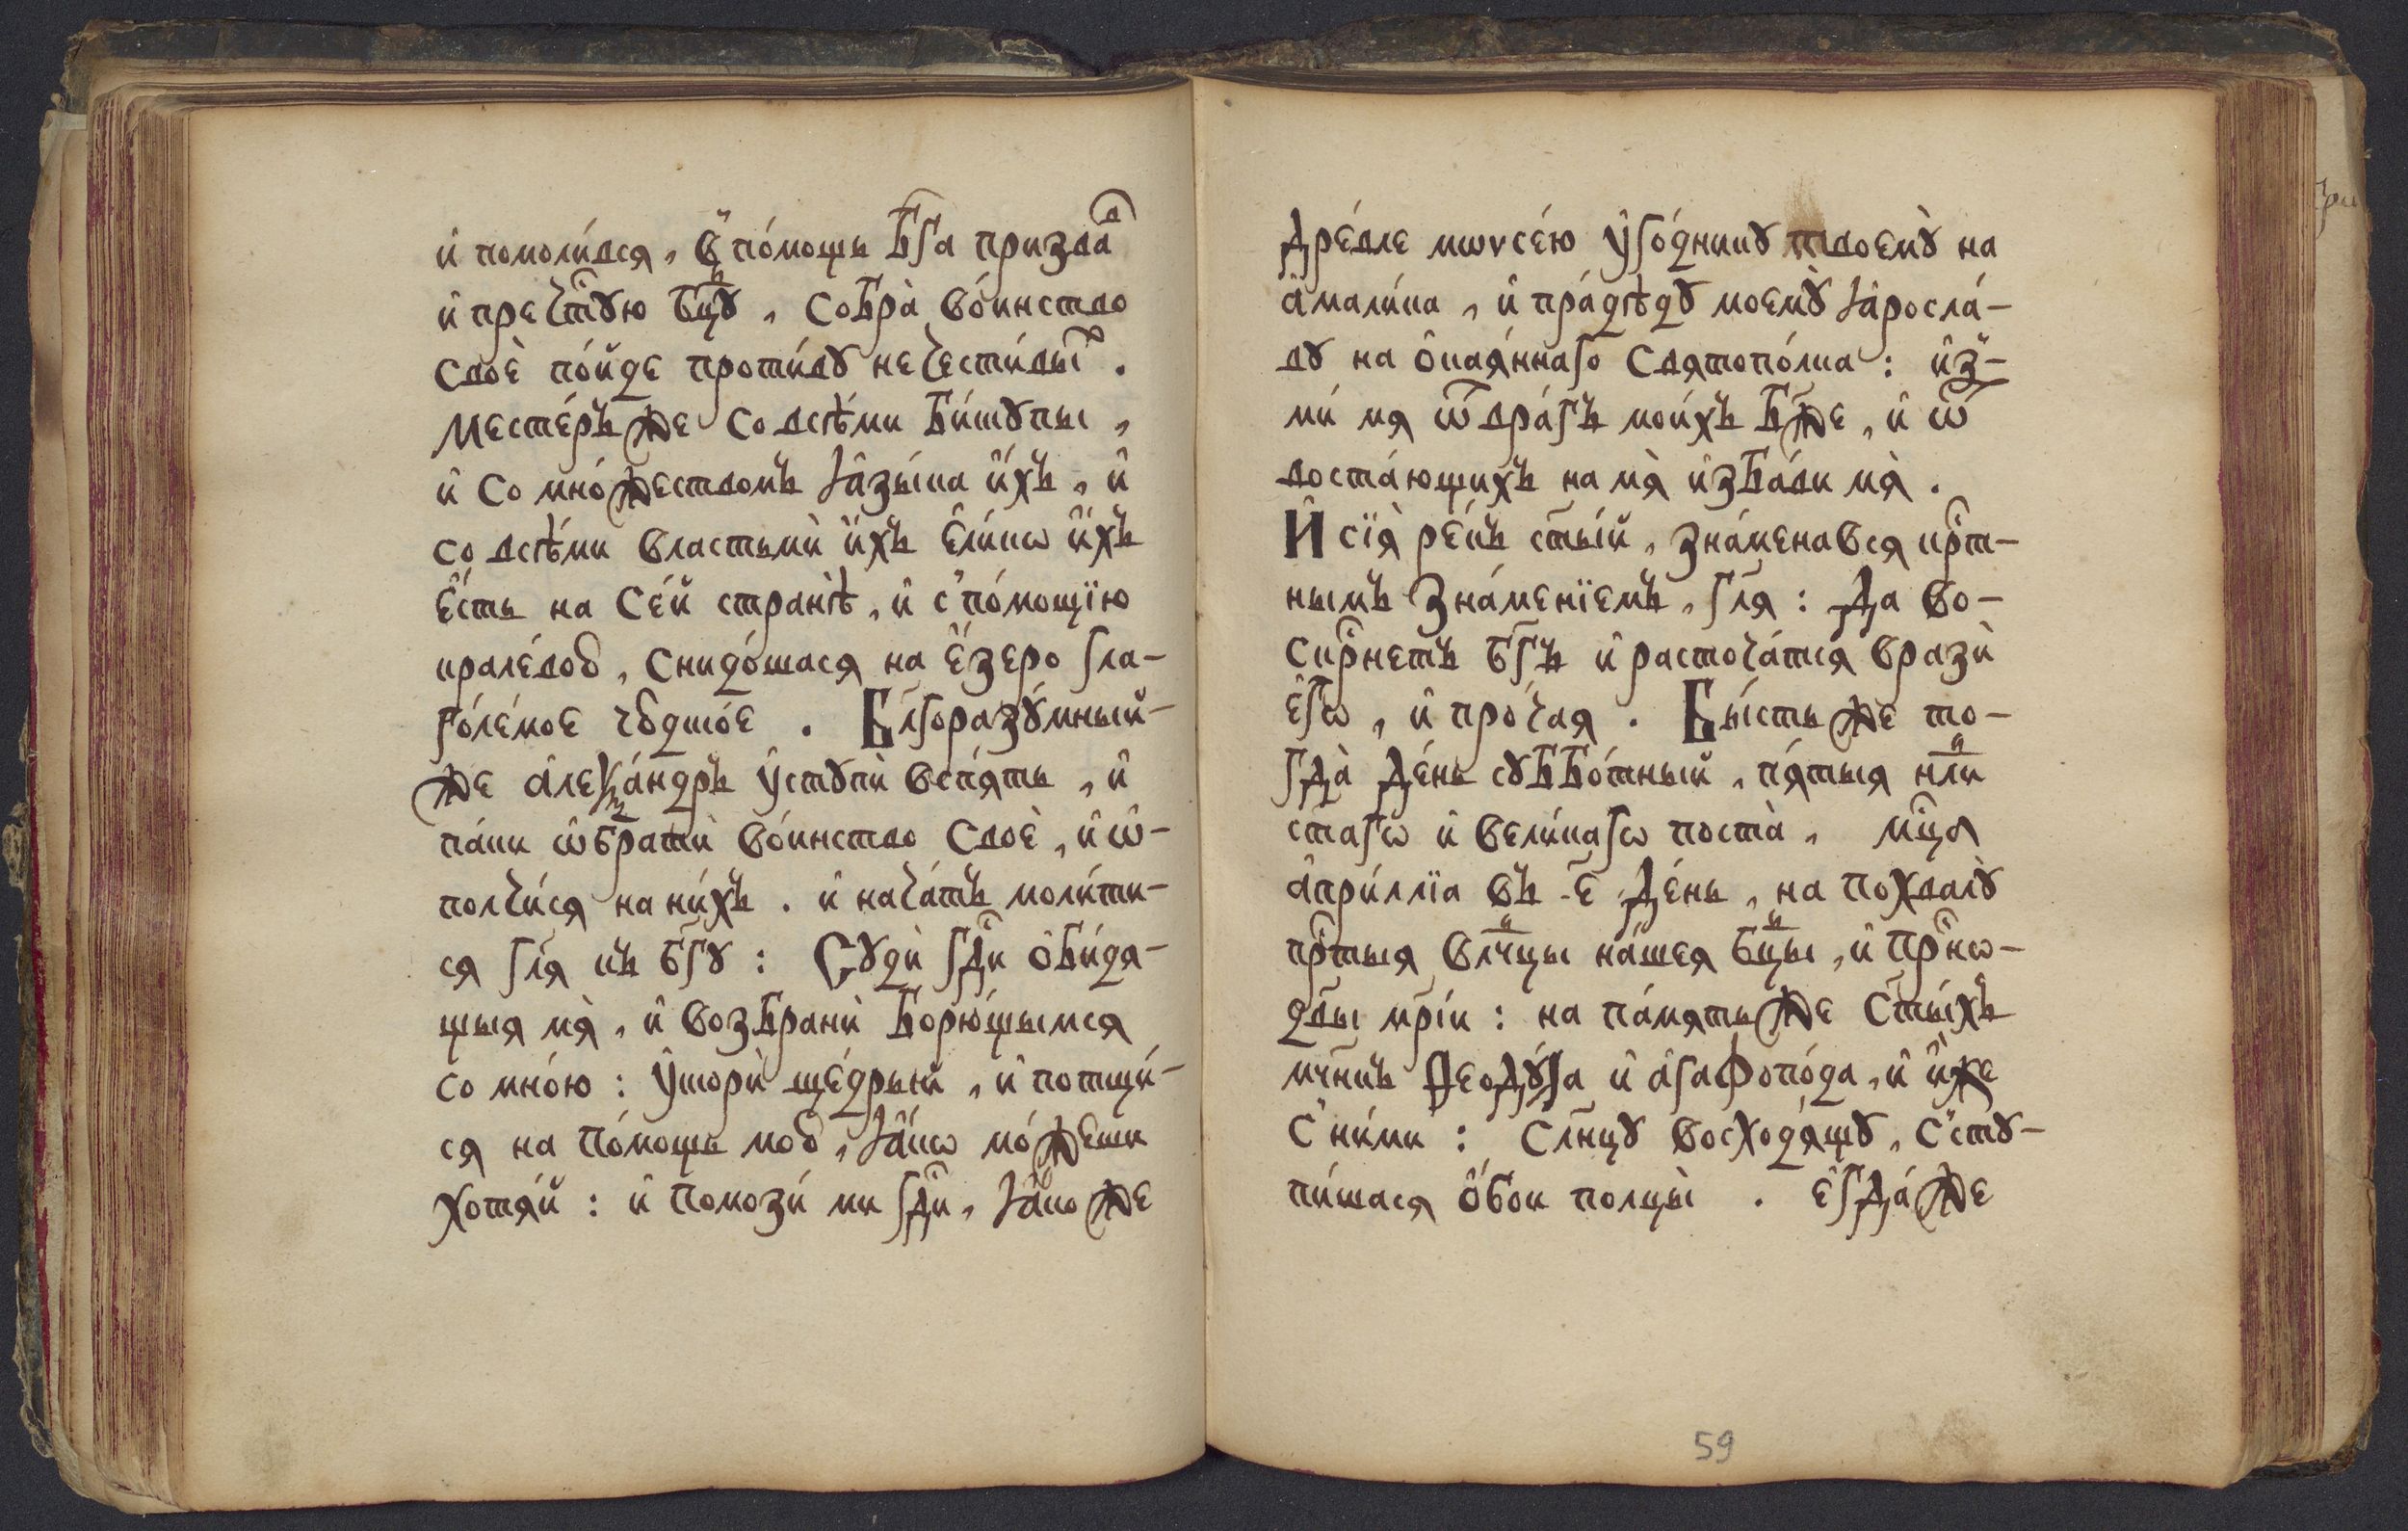 и҆ помоли́вся, в̾ по́мощь бг҃а призва̀
и҆ пречⷭ҇тꙋю бцⷣꙋ, собра̀ во́инство
своѐ по́йде проти́вꙋ нечести́выⷯ.
местє́ръ же со всѣ́ми би́шꙋпы,
и҆ со мно́жествомъ ꙗ҆зы́ка и҆́хъ, и҆
со всѣ́ми властьмѝ и҆́хъ є҆ли́кѡ и҆́хъ
є҆́сть на се́й странѣ̀, и҆ с̾ по́мощїю
крале́воѹ, снидо́шася на є҆́зеро гла-
го́лемое чюдшо́е. Бл҃горазꙋ́мный-
же а҆леѯа́ндръ ᲂу҆стꙋпѝ вспя́ть, и҆
па́ки ѡ҆братѝ во́инство своѐ, и҆ ѡ҆-
полчи́ся на ни́хъ. и҆ нача́тъ моли́ти-
ся гл҃я къ бг҃ꙋ: Сꙋдѝ гдⷭ҇и ѡ҆би́дя-
щыя мя̀, и҆ возбранѝ борю́щымся
со мно́ю: ᲂу҆скорѝ ще́дрый, и҆ потщи́-
ся на по́мощь моѹ, ꙗ҆́кѡ мо́жеши
хотя́й: и҆ помозѝ ми гдⷭ҇и, ꙗ҆́ко же
дре́вле мѡѵсе́ю ᲂу҆го́дникꙋ твоемꙋ̀ на
а҆мали́ка, и҆ пра́дѣдꙋ моемꙋ̀ ꙗ҆росла́-
вꙋ на ѻ҆кая́ннаго святопо́лка: и҆з̾-
ми́ мя ѿ вра́гъ мои́хъ бж҃е, и҆ ѿ
воста́ющихъ на мя̀ и҆зба́ви мя̀.
И҆ сїя̀ ре́къ ст҃ы́й, зна́менався крⷭ҇т-
нымъ зна́менїемъ, гл҃я: Да во-
скрⷭ҇нетъ бг҃ъ и҆ расточа́тся вразѝ
є҆гѡ̀, и҆ про́чая. Бы́сть же то-
гда̀ де́нь сꙋббо́тный, пя́тыя нлⷣи
ст҃агѡ и҆ вели́кагѡ поста̀, мцⷭ҇а
а҆прі́ллїа въ є҃ де́нь, на похвалꙋ̀
прⷭ҇тыя влчⷣцы на́шея бцⷣы, и҆ прⷭ҇нѡ-
дв҃ы мр҃і́и: на па́мять же ст҃ы́хъ
мч҃никъ ѳеодꙋ́ла и҆ а҆гафопо́да, и҆ и҆́же
с̾ ни́ми: сл҃нцꙋ восходя́щꙋ, с̾стꙋ-
пи́шася ѻ҆́бои полцы̀. є҆гда́ же
59